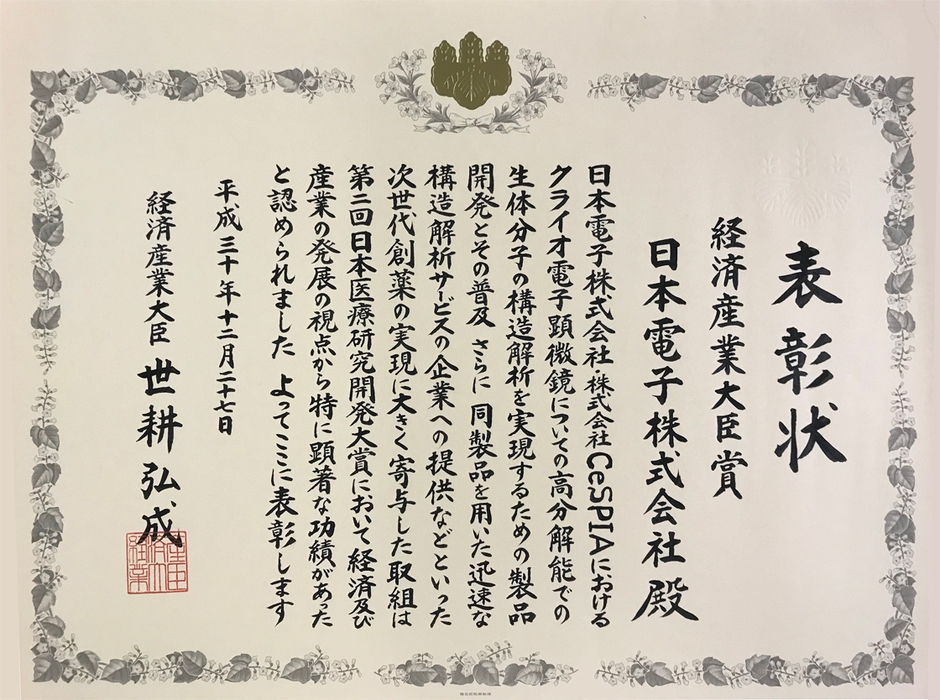 表彰状
経済産業大臣賞
日本電子株式会社 殿
日本電子株式会社・株式会社CeSPIAにおける
クライオ電子顕微鏡についての高分解能での
生体分子の構造解析を実現するための製品
開発とその普及 さらに 同製品を用いた迅速な
構造解析サービスの企業への提供などといった
次世代創薬の実現に大きく寄与した取組は
第二回日本医療研究開発大賞において経済及び
産業の発展の視点から特に顕著な功績があった
と認められました よってここに表彰します
平成三十年十二月二十七日
経済産業大臣 世耕弘成